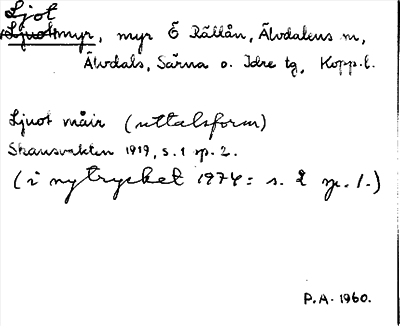 Ljot
Ljuotmyr, myr Ö Rällån, Älvdalens sn,
Älvdals, Särna o. Idre tg, Kopp. l.
Ljuot måir (uttalsform)
Skansvakten 1919, s. 1 sp. 2.
(i nytrycket 1974: s. 2 sp. 1.)
P.A. 1960.